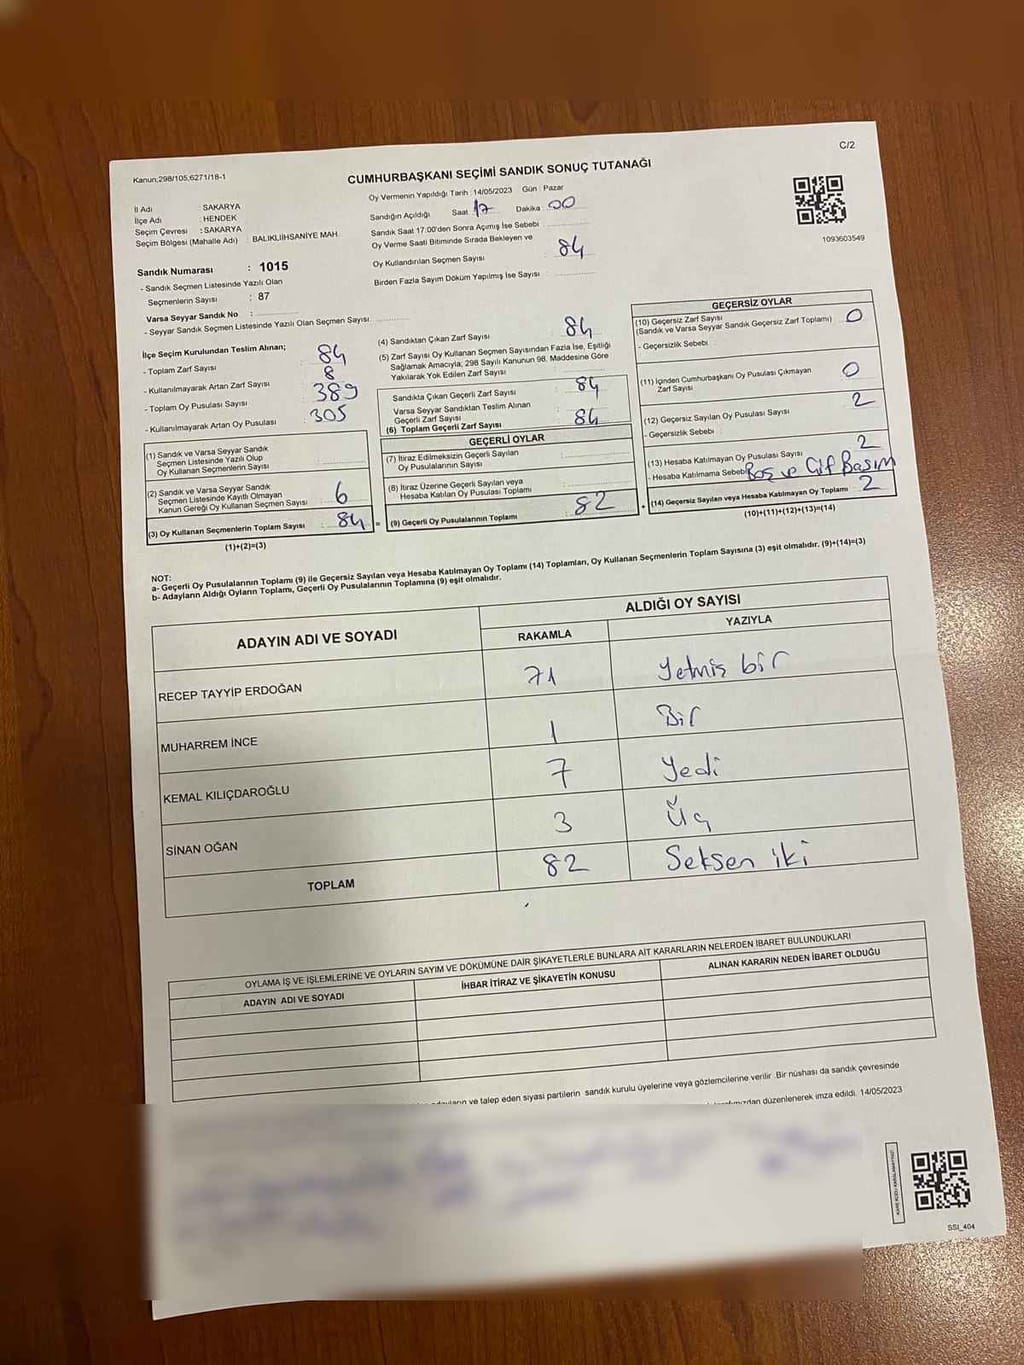 Kanun;298/105,6271/18-1
C/2
CUMHURBAŞKANI SEÇİMİ SANDIK SONUÇ TUTANAĞI
İl Adı : SAKARYA
İlçe Adı : HENDEK
Seçim Çevresi : SAKARYA
Seçim Bölgesi (Mahalle Adı) BALIKLIİHSANİYE MAH.
Oy Vermenin Yapıldığı Tarih : 14/05/2023 Gün : Pazar
Sandığın Açıldığı Saat 17 Dakika : 00
Sandık Saat 17.00'den Sonra Açımış İse Sebebi
Oy Verme Saati Bitiminde Sırada Bekleyen ve
Oy Kullandırılan Seçmen Sayısı : 84
Birden Fazla Sayım Döküm Yapılmış İse Sayısı :
1093603549
Sandık Numarası : 1015
- Sandık Seçmen Listesinde Yazılı Olan
Seçmenlerin Sayısı : 87
Varsa Seyyar Sandık No :
- Seyyar Sandık Seçmen Listesinde Yazılı Olan Seçmen Sayısı
İlçe Seçim Kurulundan Teslim Alınan;
- Toplam Zarf Sayısı 84
- Kullanılmayarak Artan Zarf Sayısı 8
- Toplam Oy Pusulası Sayısı 389
- Kullanılmayarak Artan Oy Pusulası 305
(1) Sandık ve Varsa Seyyar Sandık
Seçmen Listesinde Yazılı Olup
Oy Kullanan Seçmenlerin Sayısı
(2) Sandık ve Varsa Seyyar Sandık
Seçmen Listesinde Kayıtlı Olmayan
Kanun Gereği Oy Kullanan Seçmen Sayısı 6
(3) Oy Kullanan Seçmenlerin Toplam Sayısı : 84
(1)+(2)=(3)
(4) Sandıktan Çıkan Zarf Sayısı 84
(5) Zarf Sayısı Oy Kullanan Seçmen Sayısından Fazla İse, Eşitliği
Sağlamak Amacıyla; 298 Sayılı Kanunun 98. Maddesine Göre
Yakılarak Yok Edilen Zarf Sayısı
Sandıkta Çıkan Geçerli Zarf Sayısı 84
Varsa Seyyar Sandıktan Teslim Alınan
Geçerli Zarf Sayısı
(6) Toplam Geçerli Zarf Sayısı 84
GEÇERLİ OYLAR
(7) İtiraz Edilmeksizin Geçerli Sayılan
Oy Pusulalarının Sayısı
(8) İtiraz Üzerine Geçerli Sayılan veya
Hesaba Katılan Oy Pusulası Toplamı
= (9) Geçerli Oy Pusulalarının Toplamı 82
GEÇERSİZ OYLAR
(10) Geçersiz Zarf Sayısı
(Sandık ve Varsa Seyyar Sandık Geçersiz Zarf Toplamı) 0
- Geçersizlik Sebebi :
(11) İçinden Cumhurbaşkanı Oy Pusulası Çıkmayan
Zarf Sayısı 0
(12) Geçersiz Sayılan Oy Pusulası Sayısı 2
- Geçersizlik Sebebi
(13) Hesaba Katılmayan Oy Pusulası Sayısı 2
- Hesaba Katılmama Sebebi Boş ve Çif Basım
+ (14) Geçersiz Sayılan veya Hesaba Katılmayan Oy Toplamı 2
(10)+(11)+(12)+(13)=(14)
NOT:
a- Geçerli Oy Pusulalarının Toplamı (9) ile Geçersiz Sayılan veya Hesaba Katılmayan Oy Toplamı (14) Toplamları, Oy Kullanan Seçmenlerin Toplam Sayısına (3) eşit olmalıdır. (9)+(14)=(3)
b- Adayların Aldığı Oyların Toplamı, Geçerli Oy Pusulalarının Toplamına (9) eşit olmalıdır.
ADAYIN ADI VE SOYADI
ALDIĞI OY SAYISI
RAKAMLA YAZIYLA
RECEP TAYYİP ERDOĞAN 71 Yetmiş bir
MUHARREM İNCE 1 Bir
KEMAL KILIÇDAROĞLU 7 Yedi
SİNAN OĞAN 3 Üç
TOPLAM 82 Seksen iki
OYLAMA İŞ VE İŞLEMLERİNE VE OYLARIN SAYIM VE DÖKÜMÜNE DAİR ŞİKAYETLERLE BUNLARA AİT KARARLARIN NELERDEN İBARET BULUNDUKLARI
ADAYIN ADI VE SOYADI İHBAR İTİRAZ VE ŞİKAYETİN KONUSU ALINAN KARARIN NEDEN İBARET OLDUĞU
ve talep eden siyasi partilerin sandık kurulu üyelerine veya gözlemcilerine verilir. Bir nüshası da sandık çevresinde
düzenlenerek imza edildi. 14/05/2023
SSI_404